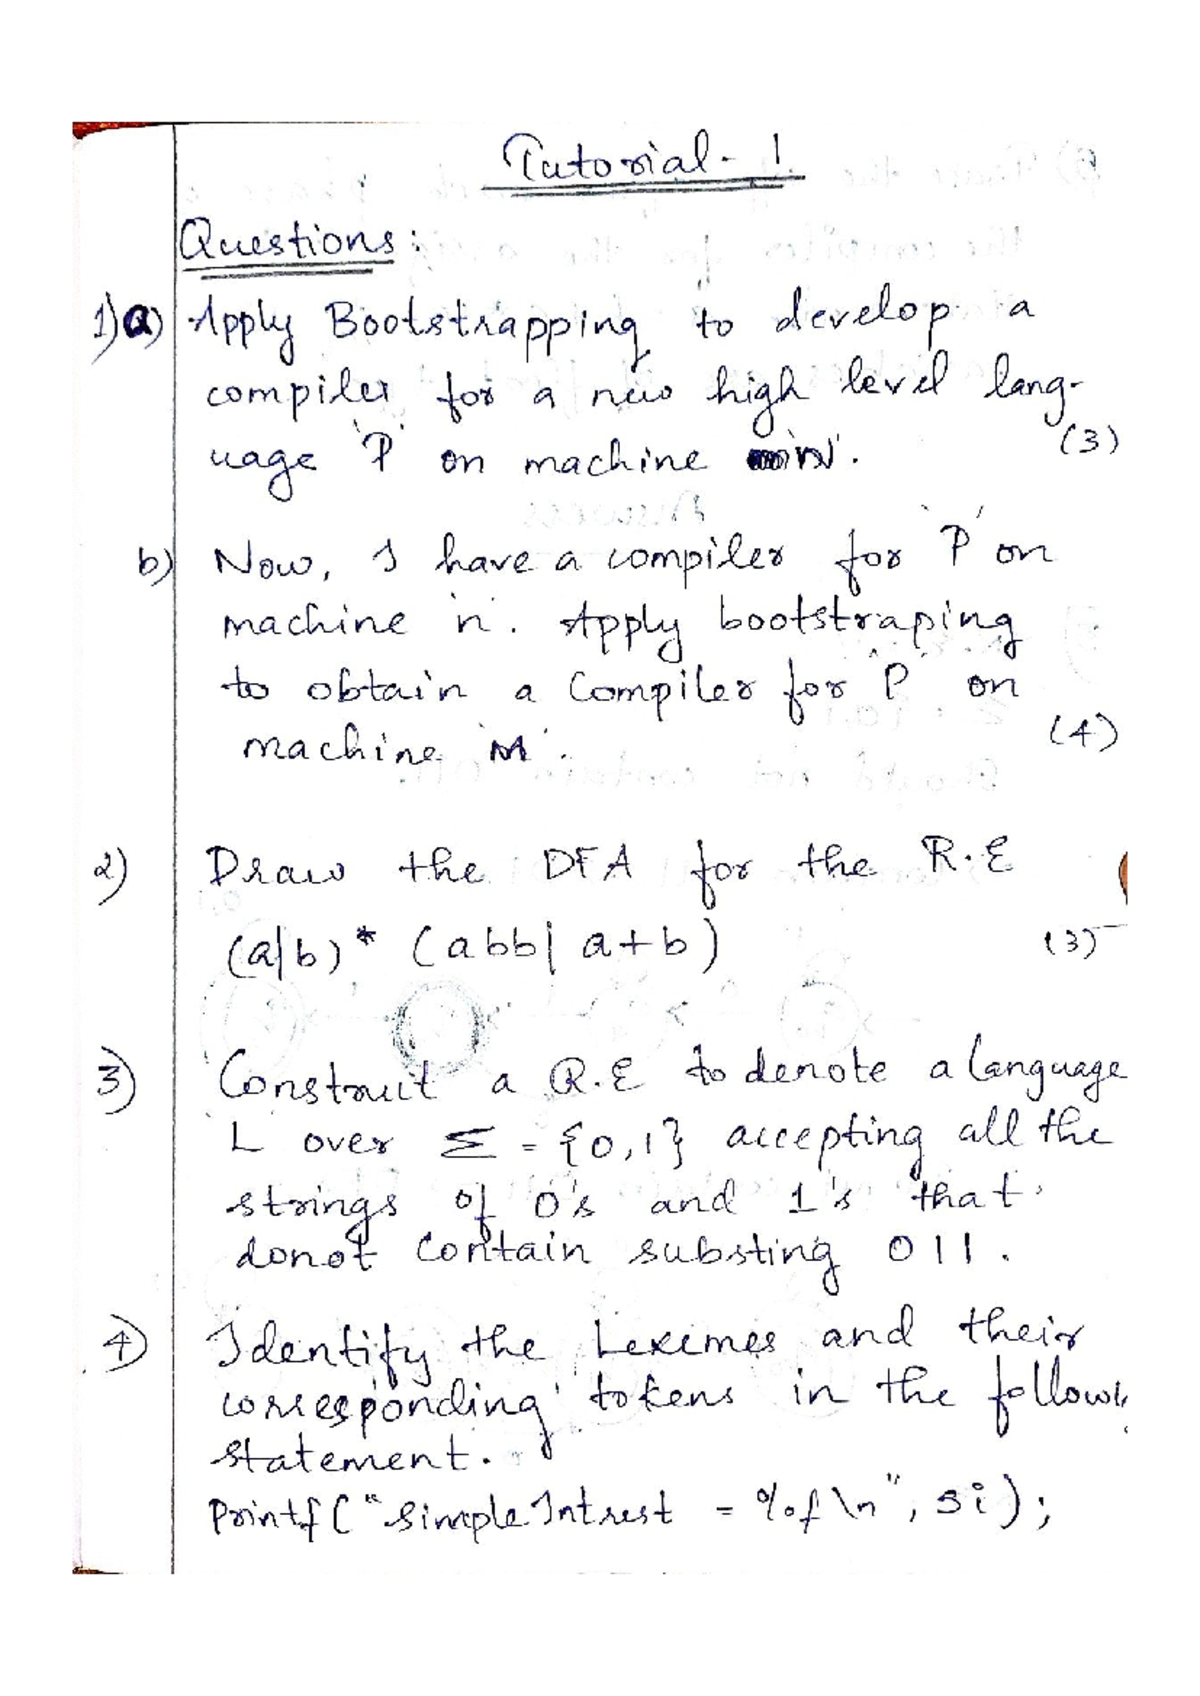 Tutorial - 1.
Questions:
1) a) Apply Bootstrapping to develop a
compiler for a new high level lang-
uage 'P' on machine 'N'. (3)
b) Now, I have a compiler for 'P' on
machine 'n'. Apply bootstraping
to obtain a Compiler for 'P' on
machine 'M'. (4)
2) Draw the DFA for the R.E
(a|b)* (abb| a+b) (3)
3) Construct a R.E to denote a language
L over Σ = {0,1} accepting all the
strings of 0's and 1's that
donot contain substing 011.
4) Identify the Lexemes and their
corresponding tokens in the followi
statement.
Printf ("Simple Intrest = %f \n", si);